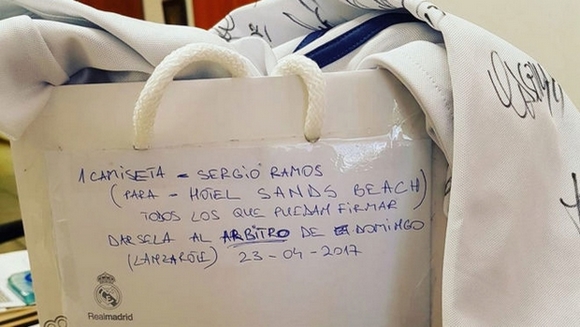 1 CAMISETA - SERGIO RAMOS
(PARA - HOTEL SANDS BEACH)
TODOS LOS QUE PUEDAN FIRMAR
DARSELA AL ARBITRO DE DOMINGO
(LANZAROTE) 23-04-2017
Realmadrid